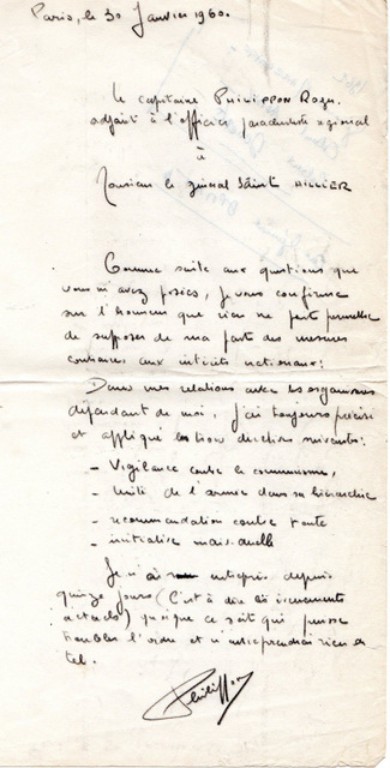 Paris, le 30 Janvier 1960.
Le capitaine PHILIPPON Roger.
adjoint à l'officier parachutiste régional
à
Monsieur le général SAINT HILLIER
Comme suite aux questions que
vous m'avez posées, je vous confirme
sur l'honneur que rien ne peut permettre
de supposer de ma part des mesures
contraires aux intérêts nationaux:
Dans mes relations avec les organismes
dépendant de moi, j'ai toujours précisé
et appliqué les trois directives suivantes:
- Vigilance contre le communisme,
- Unité de l'armée dans sa hiérarchie
- recommandation contre toute
- initiative
Je n'ai entrepris depuis
quinze jours (C'est à dire les évenements
actuels) quoique ce soit qui puisse
troubler l'ordre et n'entreprendrai rien de
tel.
Philippon